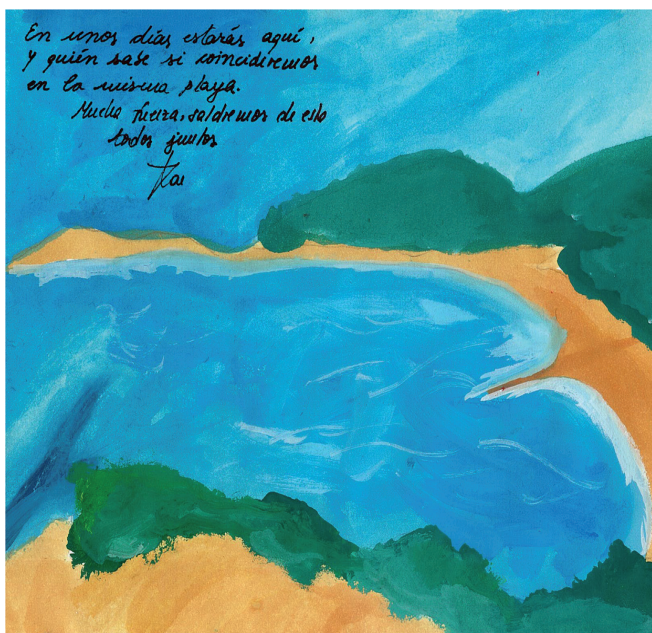 En unos días estarás aquí,
y quién sabe si coincidiremos
en la misma playa.
Mucha fuerza, saldremos de esto
todos juntos